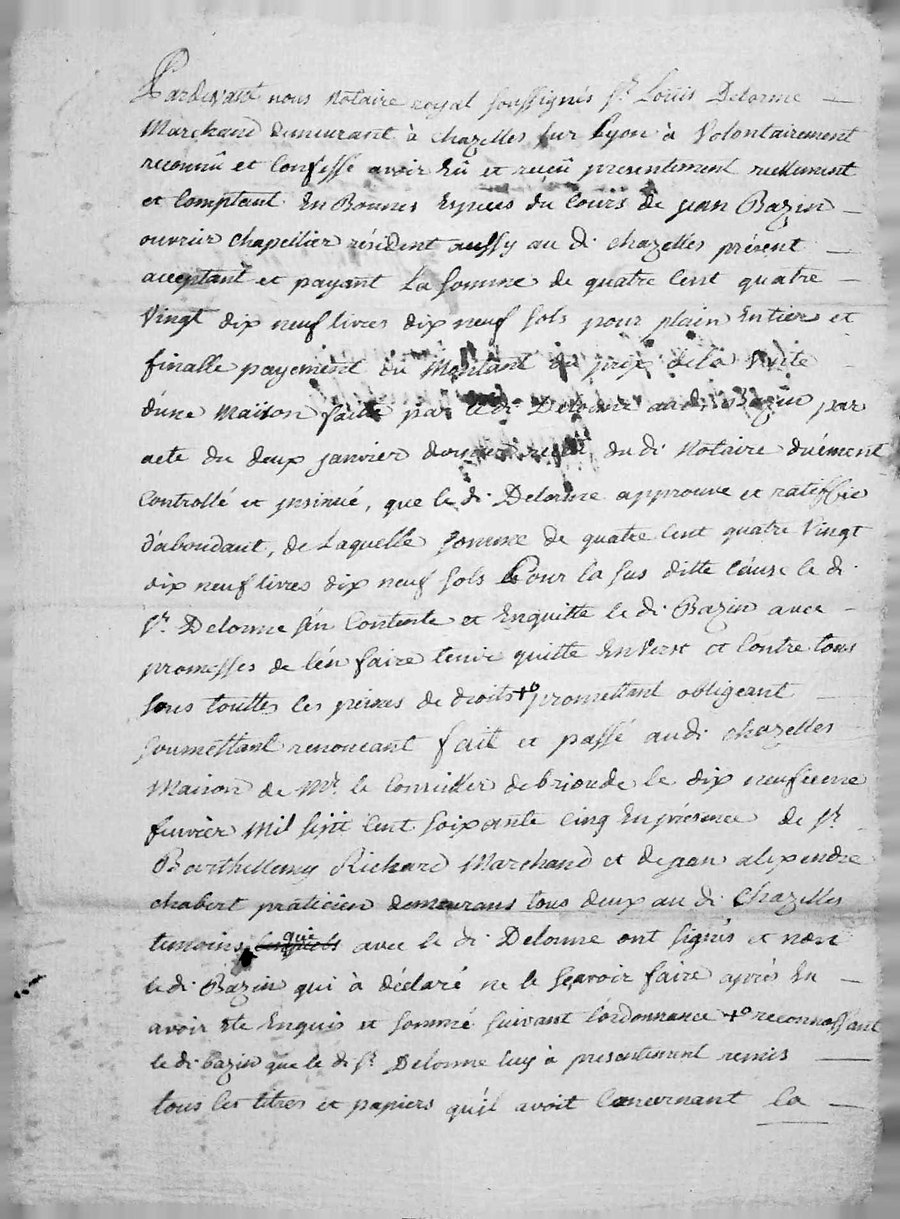 Pardevant nous Notaire royal soussignés Sr. Louis Delorme
Marchand demeurant à Chazelles sur Lyon à Volontairement
reconnû et Confessé avoir Eû et reçû presentement reellement
et Comptant En Bonnes Especes du Cours de jean Bazin
ouvrier chapellier résident aussy au di. chazelles présent
acceptant et payant La somme de quatre Cent quatre
Vingt dix neuf livres dix neuf sols pour plain Entier et
finalle payement du Montant du prix de la Vente
d'une Maison faitte par le di. Delorme au di. Bazin par
acte du deux janvier dernier reçû du di. Notaire duëment
Controllé et jnsinué, que le di. Delorme approuve et ratiffie
d'abondant, de Laquelle somme de quatre Cent quatre Vingt
dix neuf livres dix neuf sols Pour la sus ditte Cause le di.
Sr. Delorme s'en Contente et Enquitte le di. Bazin avec
promesses de l'en faire tenir quitte Envers et Contre tous
sous touttes les peines de droits +o promettant obligeant
soumettant renonceant fait et passé au di. chazelles
Maison de Mr. le Conseiller debrioude le dix neufieme
fevrier Mil sept Cent soixante Cinq En présence de Sr.
Barthellemy Richard Marchand et de jean alexendre
chabert praticien demeurans tous deux au di. Chazelles
temoins lesquels qui avec le di. Delorme ont signés et non
le di. Bazin qui à déclaré ne le sçavoir faire aprés En
avoir Ete Enquis et sommé suivant l'ordonnance +o reconnoissant
le di. bazin que le di. Sr. Delorme luy à presentement remis
tous les titres et papiers qu'il avoit Concernant la